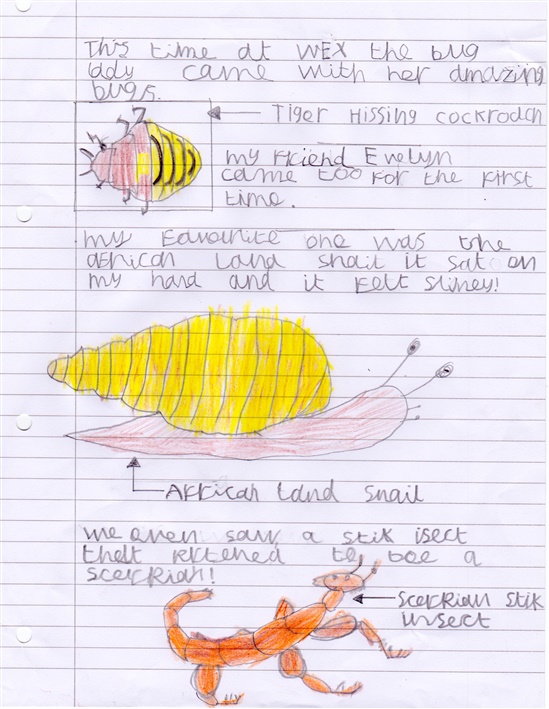 This time at WEX the bug
lady came with her amazing
bugs.
Tiger Hissing cockroach
my friend Evelyn
came too for the first
time.
my favourite one was the
african Land snail it sat on
my hand and it felt slimey!
African Land snail
we even saw a stik isect
thelt rktened to bee a
scerkian!
scerkian stik
insect